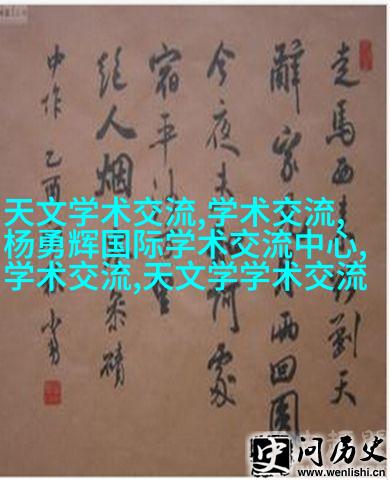 走馬西来到天
辭家月两回圓
今夜未何處
宿平沙
絕人烟岑磧
中作 乙酉
天文学术交流,学术交流,
杨勇辉国际学术交流中心,
学术交流,天文学学术交流
史问历史
www.wenlishi.cn